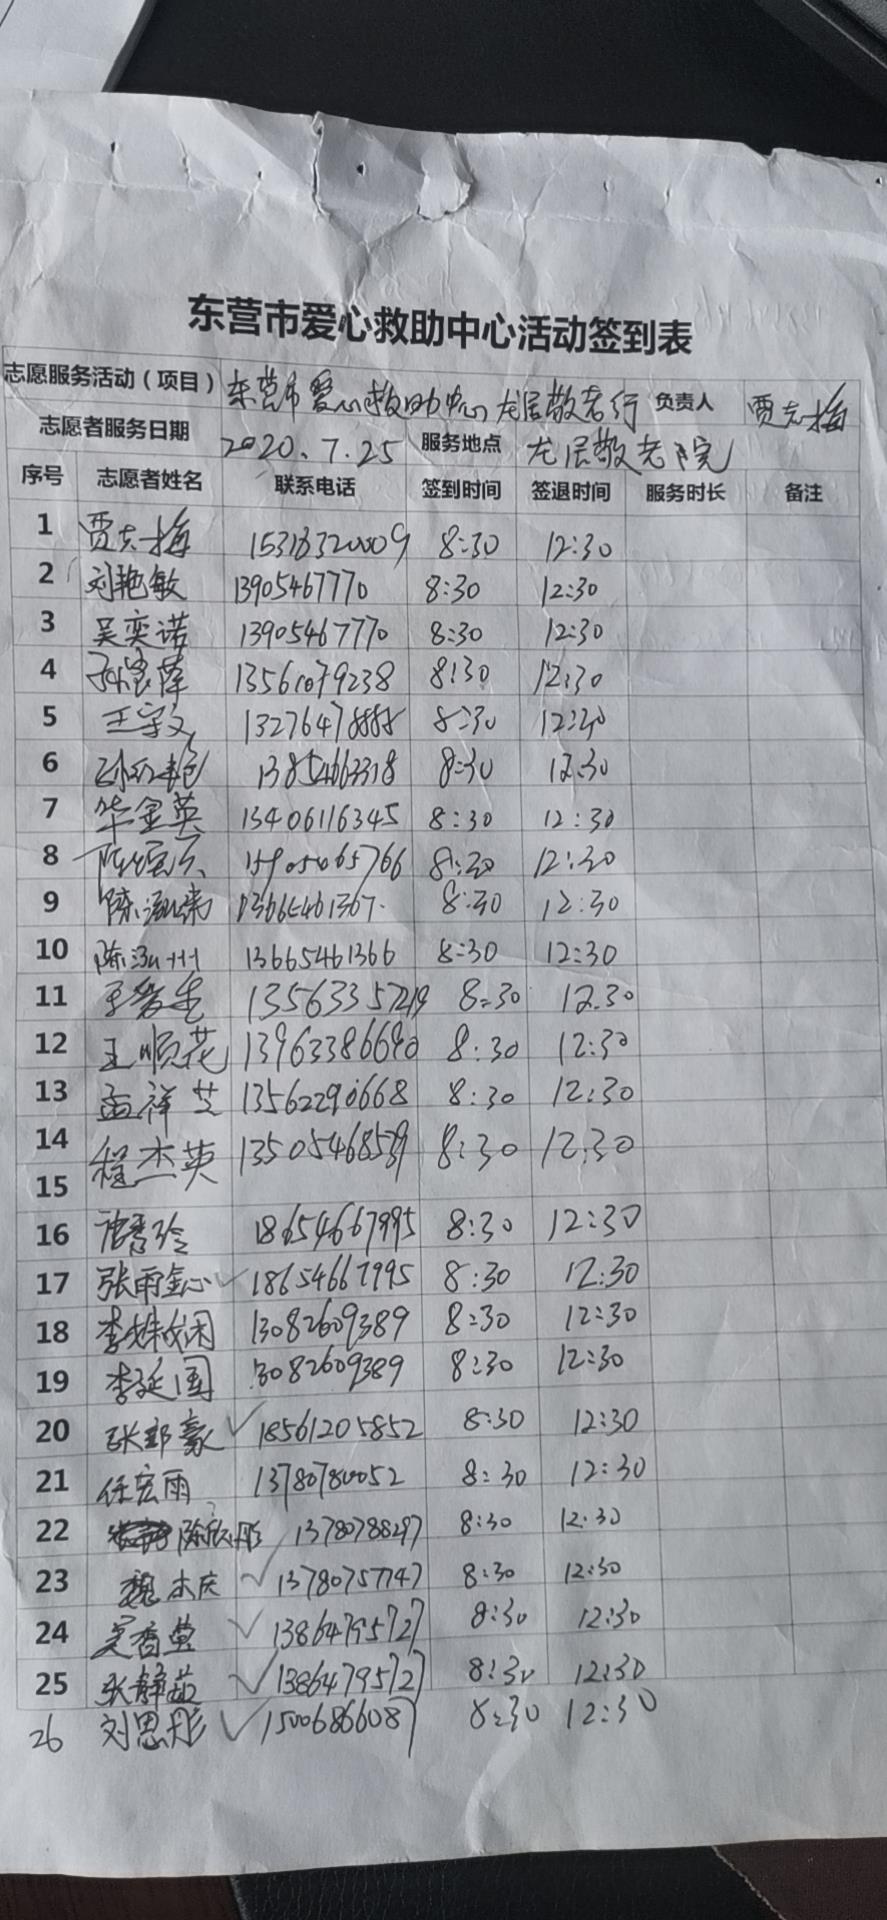 东营市爱心救助中心活动签到表
志愿服务活动（项目） 东营市爱心救助中心龙居敬老行 负责人 贾志梅
志愿者服务日期 2020.7.25 服务地点 龙居敬老院
序号 志愿者姓名 联系电话 签到时间 签退时间 服务时长 备注
1 贾志梅 15318320009 8:30 12:30
2 刘艳敏 13905467770 8:30 12:30
3 吴奕诺 13905467770 8:30 12:30
4 13561079238 8:30 12:30
5 王宇文 13276478888 8:30 12:30
6 13854663318 8:30 12:30
7 华金英 13406116345 8:30 12:30
8 15905465766 8:30 12:30
9 13665461367 8:30 12:30
10 13665461366 8:30 12:30
11 13563357219 8:30 12.30
12 王顺花 13963386690 8:30 12:30
13 孟祥芝 13562290668 8:30 12:30
14 程杰英 13505468539 8:30 12:30
15
16 18654667995 8:30 12:30
17 张雨鑫 18654667995 8:30 12:30
18 李姝娴 13082609389 8:30 12:30
19 李延国 13082609389 8:30 12:30
20 张郡豪 18561205852 8:30 12:30
21 任宏雨 13780780052 8:30 12:30
22 陈欣彤 13780788297 8:30 12:30
23 魏本庆 13780757747 8:30 12:30
24 吴香莹 13864795727 8:30 12:30
25 张静茹 13864795727 8:30 12:30
26 刘思彤 15006866087 8:30 12:30